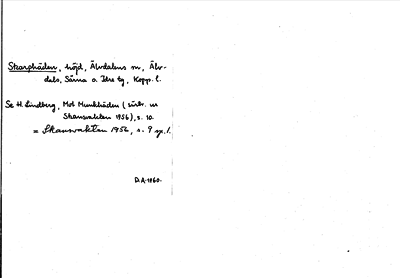 Skarphåden, höjd, Älvdalens sn, Älv-
dals, Särna o. Idre tg, Kopp. l.
Se H. Lindberg, Mot Munkbåden (särtr. ur
Skansvakten 1956), s. 10.
= Skansvakten 1956, s. 9 sp. 1.
D.A. 1860.